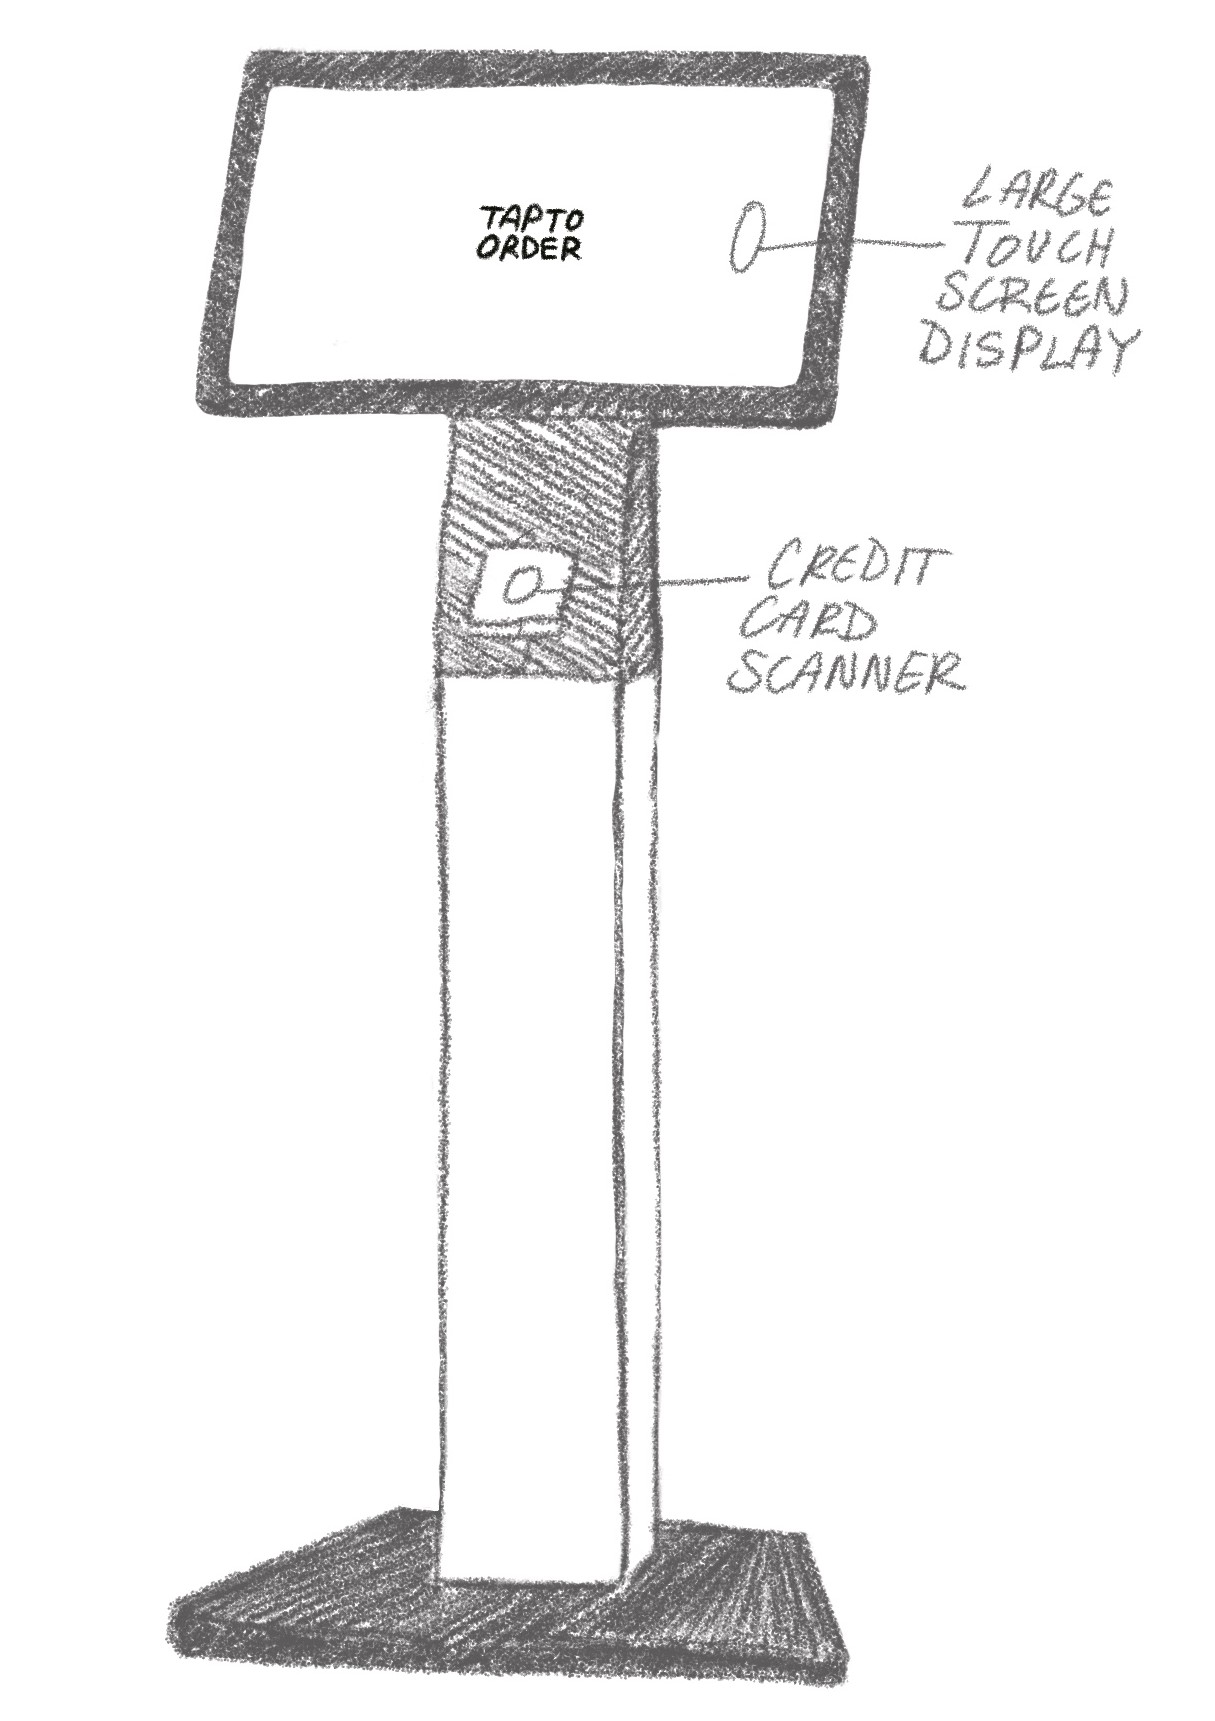 TAP TO
ORDER
LARGE
TOUCH
SCREEN
DISPLAY
CREDIT
CARD
SCANNER